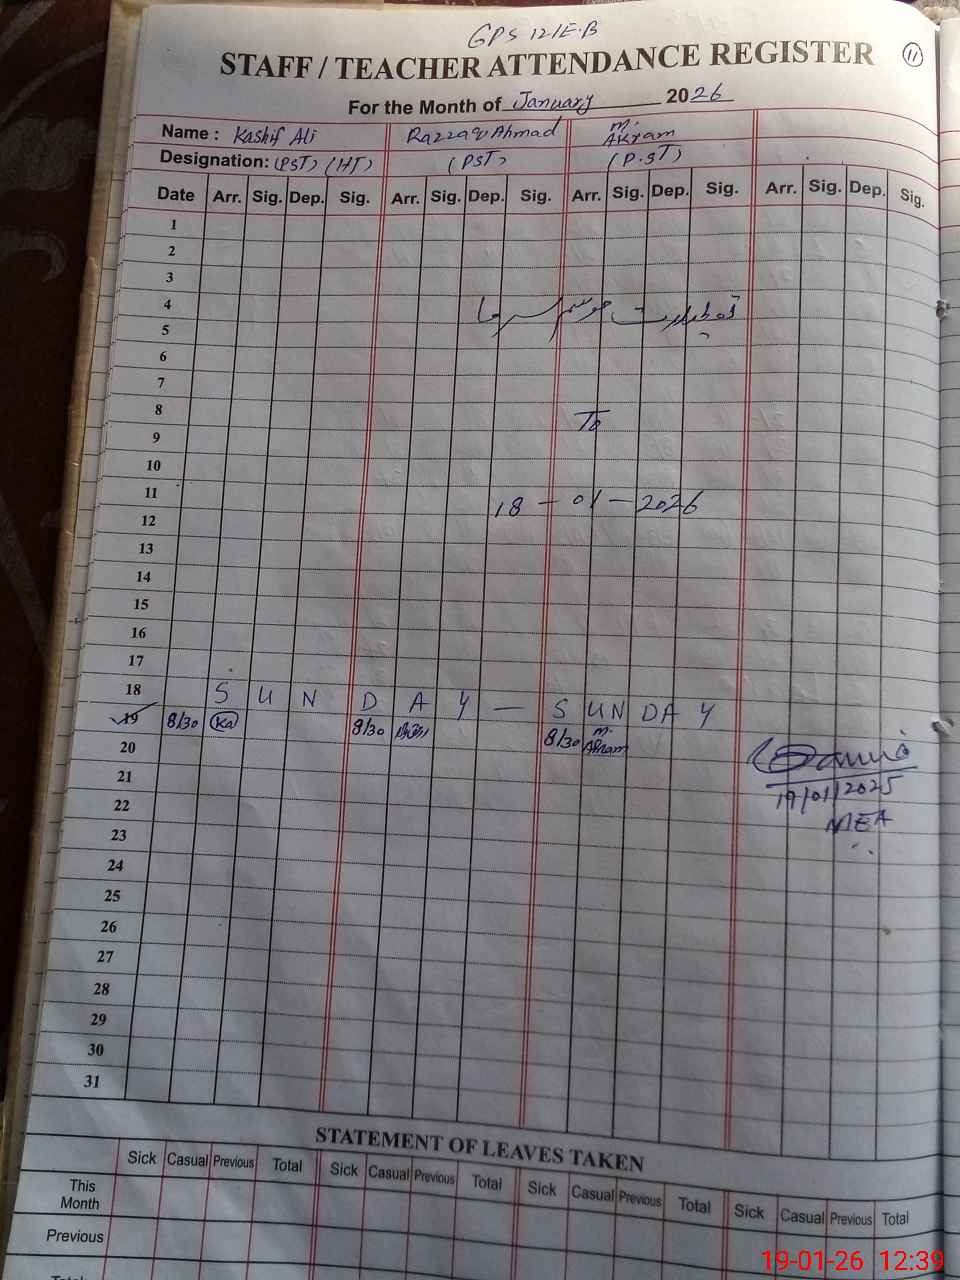 GPS 121E.B
STAFF / TEACHER ATTENDANCE REGISTER 11
For the Month of January 2026
Name : Kashif Ali Razzaq Ahmad M. Akram
Designation: (PST) (HT) (PST) (P.ST)
Date Arr. Sig. Dep. Sig. Arr. Sig. Dep. Sig. Arr. Sig. Dep. Sig. Arr. Sig. Dep. Sig.
1
2
3
4 تعطیلات موسم سرما
5
6
7
8 To
9
10
11 18-01-2026
12
13
14
15
16
17
18 S U N D A Y — S U N D A Y
19 8/30 Ka 8/30 8/30 M. Akram
20
19/01/2025
21
MEA
22
23
24
25
26
27
28
29
30
31
STATEMENT OF LEAVES TAKEN
Sick Casual Previous Total Sick Casual Previous Total Sick Casual Previous Total Sick Casual Previous Total
This Month
Previous
19-01-26 12:39